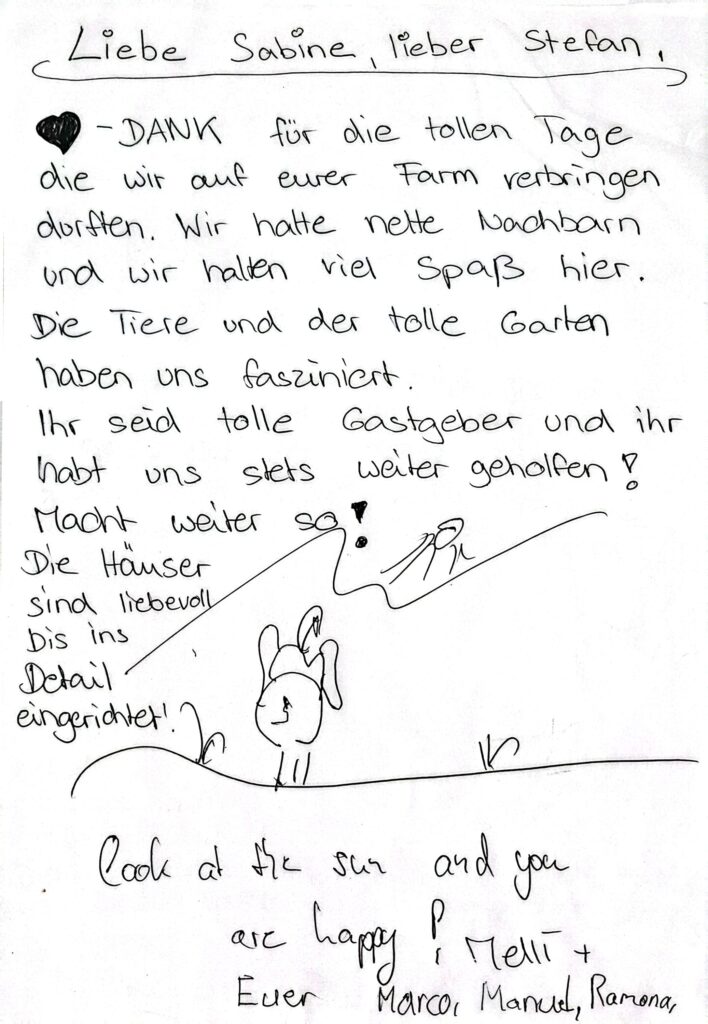 Liebe Sabine, lieber Stefan,
- DANK für die tollen Tage
die wir auf eurer Farm verbringen
dürften. Wir hatte nette Nachbarn
und wir hatten viel Spaß hier.
Die Tiere und der tolle Garten
haben uns fasziniert.
Ihr seid tolle Gastgeber und ihr
habt uns stets weiter geholfen!
Macht weiter so!
Die Häuser
sind liebevoll
bis ins
Detail
eingerichtet!
Look at the sun and you
are happy!
Euer Marco, Manuel, Ramona,
Melli +